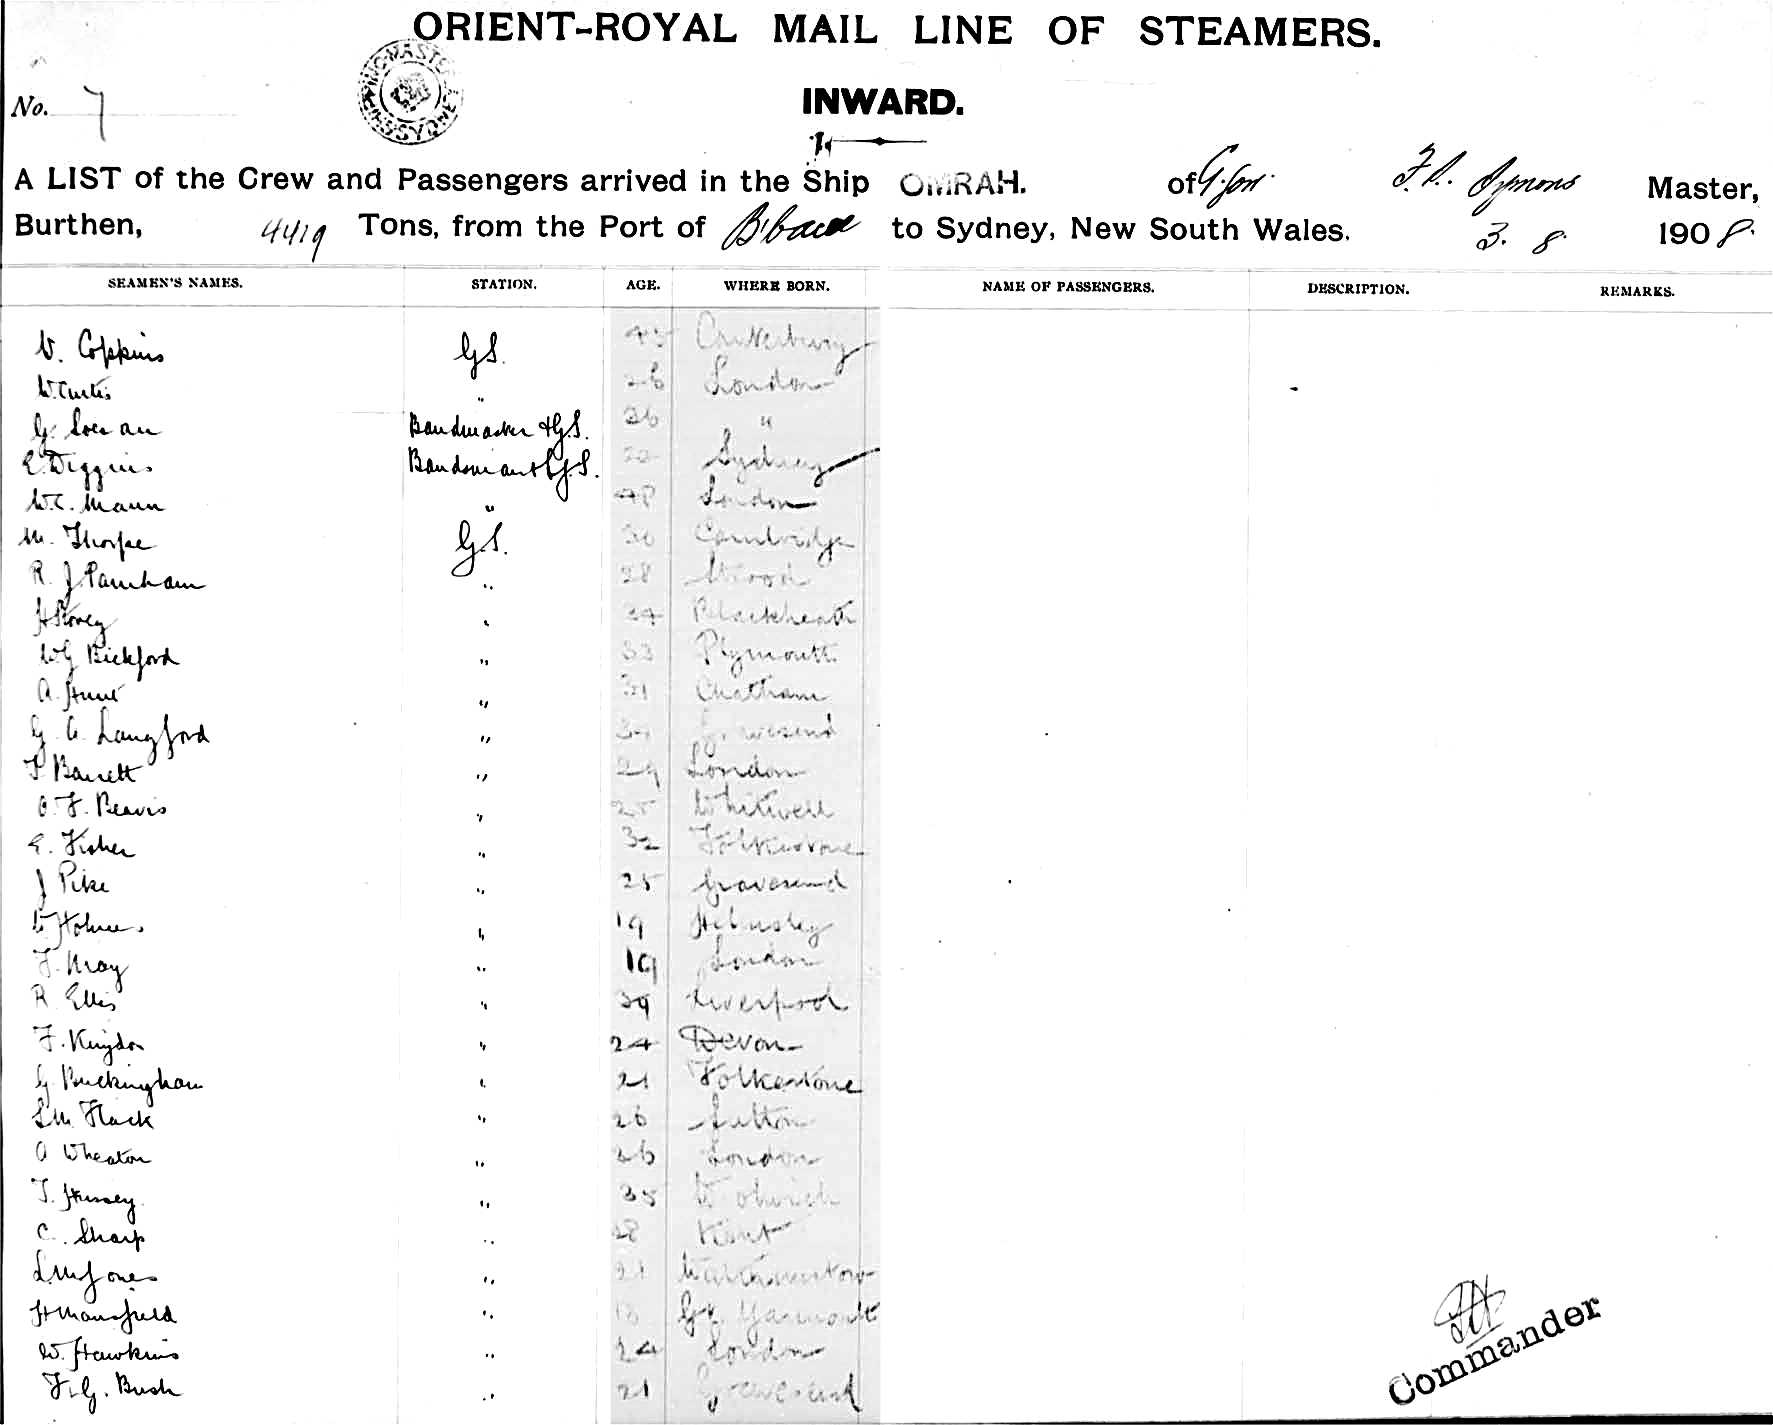 ORIENT-ROYAL MAIL LINE OF STEAMERS.
No. 7
INWARD.
A LIST of the Crew and Passengers arrived in the Ship OMRAH. of G. Symons Master,
Burthen, 4419 Tons, from the Port of B'bane to Sydney, New South Wales. 3. 8. 1908.
SEAMEN'S NAMES. STATION. AGE. WHERE BORN. NAME OF PASSENGERS. DESCRIPTION. REMARKS.
Coppins G.S. 45 Canterbury
W. Curtis " 26 London
G. Bandmaster & G.S. 36 "
E. Diggins Bandsman & G.S. Sydney
W.C. Mann " 48 London
M. Thorpe G.S. 30 Cambridge
R. J. Parnham " 28 Strood
H Storey " 34 Blackheath
W G Bickford " 33 Plymouth
A. Hunt " 31 Chatham
G. A. Langford " Gravesend
F. Barrett " 29 London
O. F. Beavis " 25 Whitwell
E. Fisher " 32 Folkestone
J Pike " 25 Gravesend
Holmes " 19 Helmsley
F. May " 19 London
R Ellis " 39 Liverpool
F. Kingdon " 24 Devon
G. Buckingham " 21 Folkestone
Flack " 26 Sutton
A Wheaton " 26 London
T. Hussey " 35 Woolwich
C. Sharp " 28 Kent
Jones " 21 Walthamstow
H Mansfield " 18 Gt. Yarmouth
W. Hawkins " 24 London
F. G. Bush " 21 Gravesend
Commander